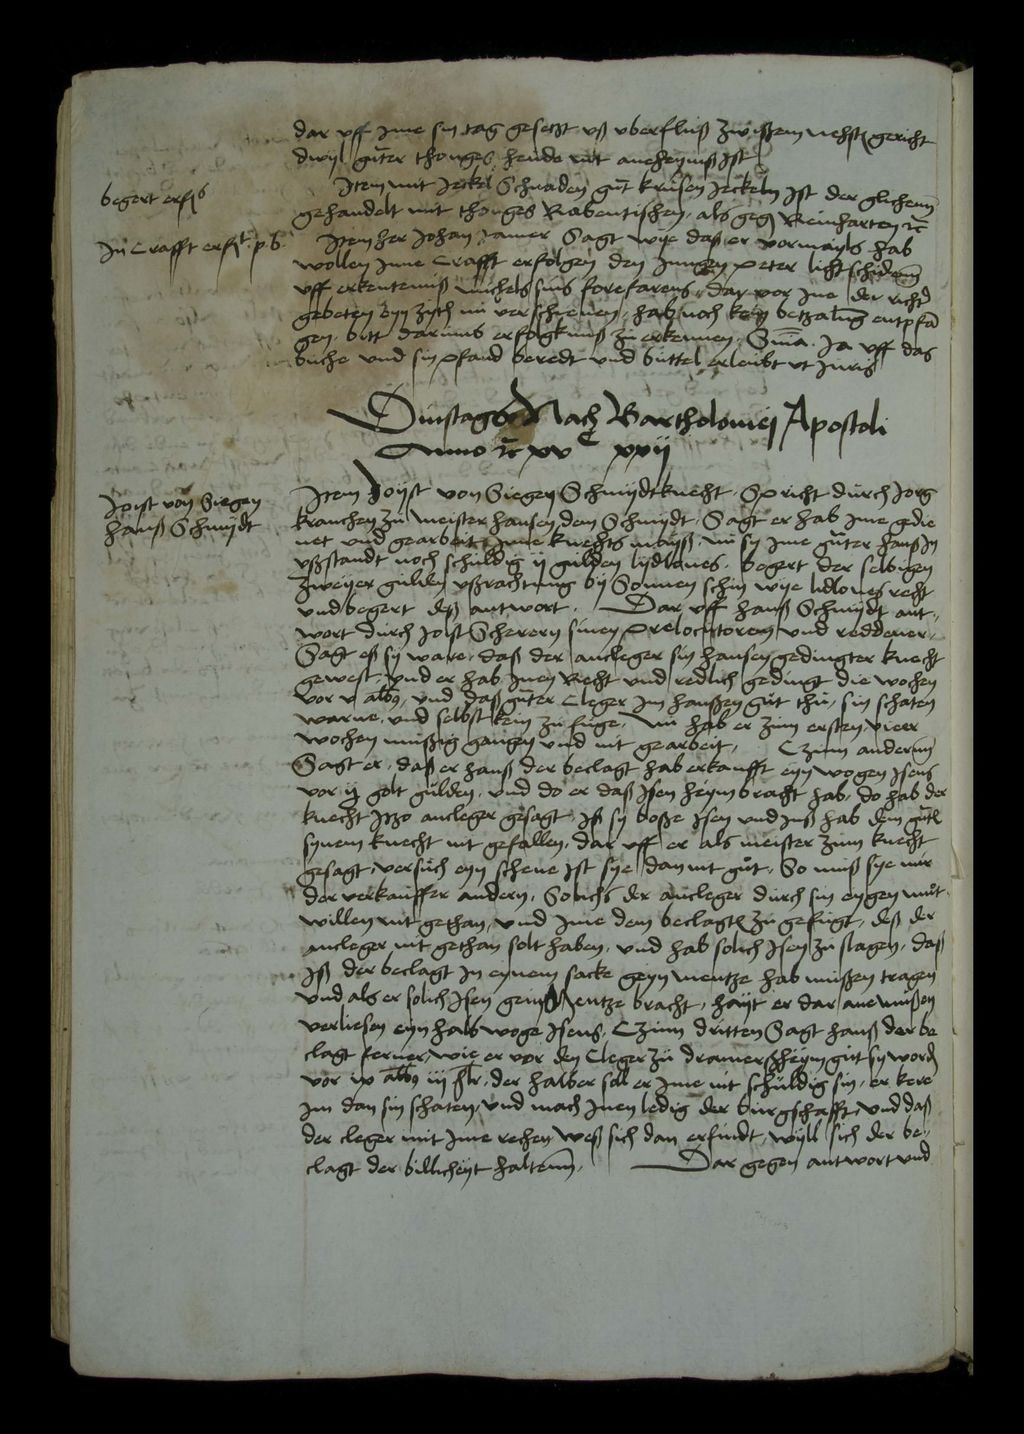 dar uff jme sin tag gesetzt uß uberfluß zu nehst gericht
dwyl guter thonges hende nit aneheymß ist
begert erfols
Item mit Jeckel Schnaden gut Krusen Jeckeln ist der glichenn
gehandelt mit thonges Rabentischen, als gegen Reinharten etc
In Crafft erf p. b.
Item her Johan Jamer Sagt wye daß er vormayls hab
wollen jnne Crafft erfolgen den jungen Peter liechtschidenn
uff erkentemiß michels sins forefarens, dar vor jne der richter
gebeten eyn zyth nu verschienen, hab noch keyn betzalung entpfan
gen, bitt darums erfolgkniß zu erkennen, Sma. Ja uff das
buche und sin pfand beredt und buttel erleubt ut juris
Dinstags Nach Bartholomej Apostoli
Anno etc xv c xxij
Joist von Siegen
Hanß Schmydt
Item Joist von Siegen Schmydtknecht, Spricht durch Jorg
kranchen zu meister hansen dem Schmydt, Sagt er hab jme gedie
net und gearbeit jme knechts wayß, nu sy jme guter hanß jn
ußstandt noch schuldig ij gulden lydlones, begert der selbigen
zweyer gulden ußrachtung by Sonnen schin wye lidlones recht
und begert deß antwort. Dar uff hanß Schmydt ant,,
wort durch Joist Scherern sinen prelocutorem und reddener,
Sagt eß sy ware, daß der ancleger sin hansen gedingter knecht
gewest, und er hab jnen Recht und redlich gedingt die wochen
vor v albus, und daß guter Cleger jm hanßen gut thu, sin schaten
warne, und selbst kein zufuge, nu hab er zum ersten vierr
wochen mußig gangen und nit gearbeit, Czum andernn
Sagt er, daß er hanß der beclagt hab erkaufft eyn wogen Isens
vor ij golt gulden, und do er daß Isen heym bracht hab, do hab der
knecht itzo ancleger gesagt, iß sy boße Isen und iuß hab dem guten
synem knecht nit gefallen, dar uff er als meister zum knecht
gesagt, versuch eyn schene ist sye dan nit gut, So muß sye mir
der verkauffer andern, Solichs der ancleger durch sin eygen mut,
willen nit gethan, und jme dem beclagten zu gefugt, deß der
ancleger nit gethan solt haben, und hab solich Isen zu slagen, daß
iß der beclagt in eynem sacke geyn mentze hab mußen tragen
und als er solich Isen geyn Mentze bracht, hayt er dar ane mußen
verliesen eyn halb woge Isens, Czum dritten Sagt hanß der be
clagt ferner, wie er vor den Cleger zu dramerßheym gut sy worden
vor xv albus iiij hlr, der halber soll er jme nit schuldig sin, er kere
jm dan sin schaten, und mach jnen ledig der burgschafft, und daß
der cleger mit jme rechen, weß sich dan erfindt, wyll sich der be,,
clagt der billicheyt haltenn, Dar gegen antwort und